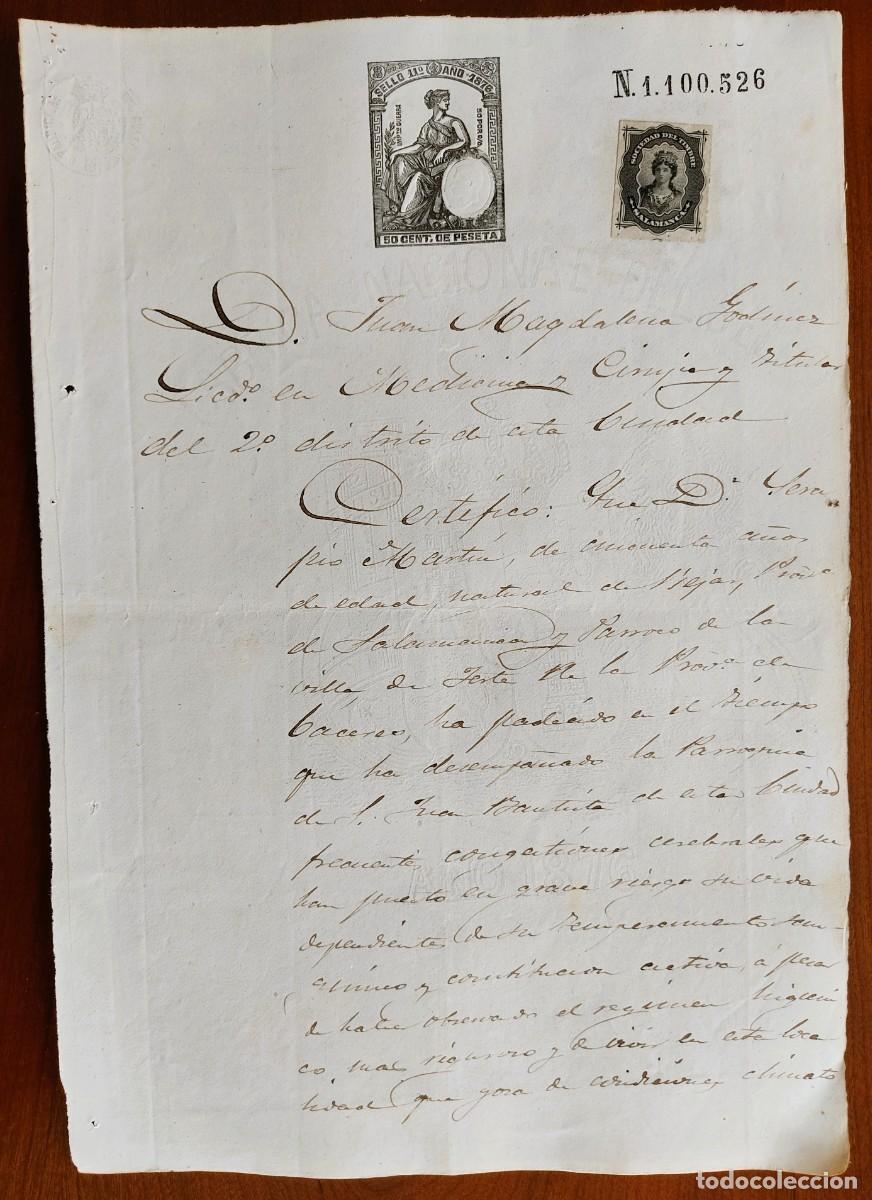 SELLO 11º AÑO 1876
IMPTO. GUERRA
50 POR 0/0
50 CENT. DE PESETA
N.1.100.526
SOCIEDAD DEL TIMBRE
SALAMANCA
D. Juan Magdalena Godinez
Licdo. en Medicina y Cirujia y Titular
del 2º distrito de esta Ciudad
Certifico: Que Dn. Sera
pio Martin, de cincuenta años
de edad, natural de Bejar, Prova
de Salamanca y Parroco de la
villa de en la Prova de
Cáceres, ha padecido en el tiempo
que ha desempeñado la Parroquia
de S. Juan Bautista de esta Ciudad
frecuentes congestiones cerebrales que
han puesto en grave riesgo su vida
dependientes de su temperamento san-
guineo y constitucion activa, á pesar
de haber observado el regimen higieni
co mas riguroso y de vivir en esta loca
lidad que goza de condiciones climato
AÑO 1876
todocoleccion
todocoleccion.net